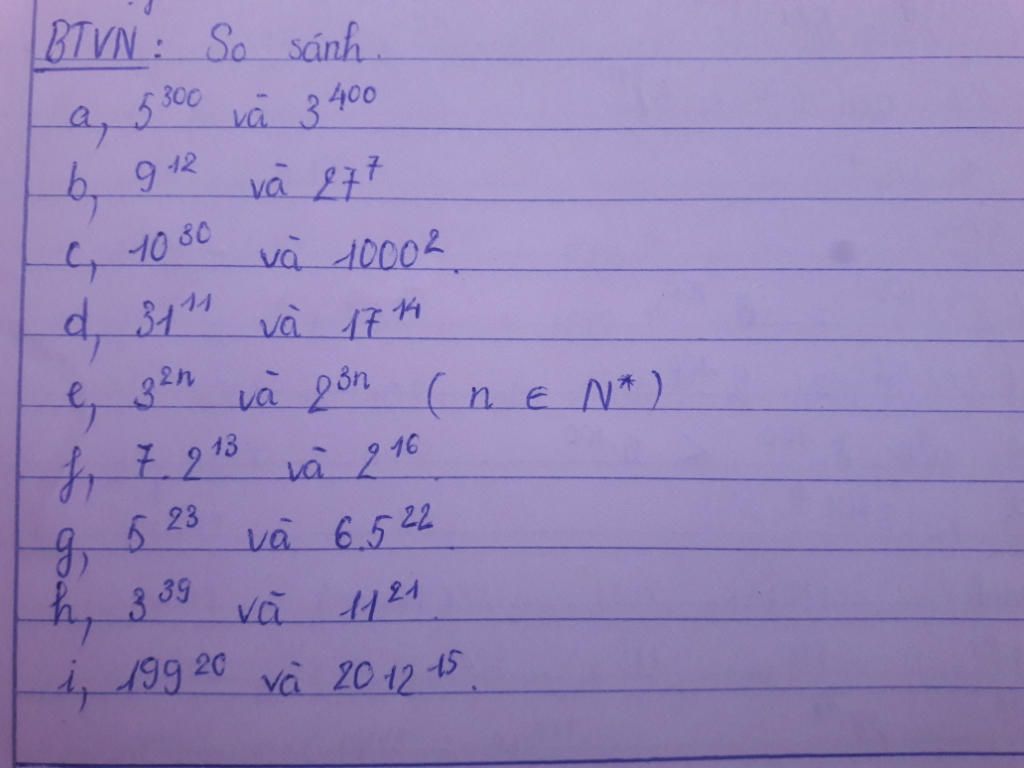 BTVN: So sánh.
a, 5^300 và 3^400
b, 9^12 và 27^7
c, 10^30 và 1000^2.
d, 31^11 và 17^14
e, 3^2n và 2^3n ( n ∈ N* )
f, 7.2^13 và 2^16
g, 5^23 và 6.5^22
h, 3^39 và 11^21
i, 199^20 và 2012^15.